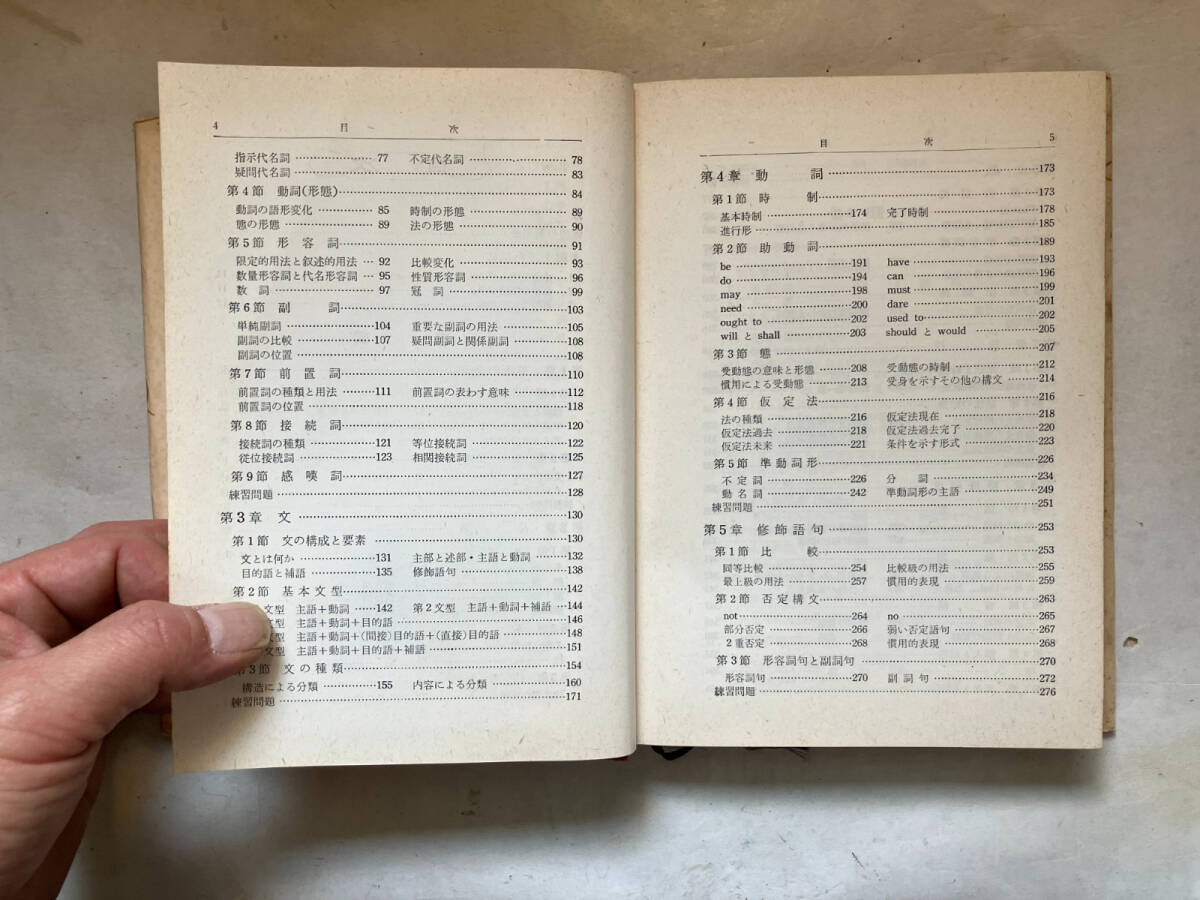 4 目次
指示代名詞 77 不定代名詞 78
疑問代名詞 83
第4節 動詞(形態) 84
動詞の語形変化 85 時制の形態 89
態の形態 89 法の形態 90
第5節 形容詞 91
限定的用法と叙述的用法 92 比較変化 93
数量形容詞と代名形容詞 95 性質形容詞 96
数詞 97 冠詞 99
第6節 副詞 103
単純副詞 104 重要な副詞の用法 105
副詞の比較 107 疑問副詞と関係副詞 108
副詞の位置 108
第7節 前置詞 110
前置詞の種類と用法 111 前置詞の表わす意味 112
前置詞の位置 118
第8節 接続詞 120
接続詞の種類 121 等位接続詞 122
従位接続詞 123 相関接続詞 125
第9節 感嘆詞 127
練習問題 128
第3章 文 130
第1節 文の構成と要素 130
文とは何か 131 主部と述部・主語と動詞 132
目的語と補語 135 修飾語句 138
第2節 基本文型 142
文型 主語+動詞 142 第2文型 主語+動詞+補語 144
文型 主語+動詞+目的語 146
文型 主語+動詞+(間接)目的語+(直接)目的語 148
文型 主語+動詞+目的語+補語 151
第3節 文の種類 154
構造による分類 155 内容による分類 160
練習問題 171
目次 5
第4章 動詞 173
第1節 時制 173
基本時制 174 完了時制 178
進行形 185
第2節 助動詞 189
be 191 have 193
do 194 can 196
may 198 must 199
need 200 dare 201
ought to 202 used to 202
will と shall 203 should と would 205
第3節 態 207
受動態の意味と形態 208 受動態の時制 212
慣用による受動態 213 受身を示すその他の構文 214
第4節 仮定法 216
法の種類 216 仮定法現在 218
仮定法過去 218 仮定法過去完了 220
仮定法未来 221 条件を示す形式 223
第5節 準動詞形 226
不定詞 226 分詞 234
動名詞 242 準動詞形の主語 249
練習問題 251
第5章 修飾語句 253
第1節 比較 253
同等比較 254 比較級の用法 255
最上級の用法 257 慣用的表現 259
第2節 否定構文 263
not 264 no 265
部分否定 266 弱い否定語句 267
2重否定 268 慣用的表現 268
第3節 形容詞句と副詞句 270
形容詞句 270 副詞句 272
練習問題 276